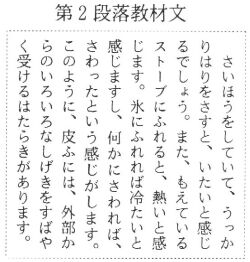 第2段落教材文
さいほうをしていて、うっか
りはりをさすと、いたいと感じ
るでしょう。また、もえている
ストーブにふれると、熱いと感
じます。氷にふれれば冷たいと
感じますし、何かにさわれば、
さわったという感じがします。
このように、皮ふには、外部か
らのいろいろなしげきをすばや
く受けるはたらきがあります。